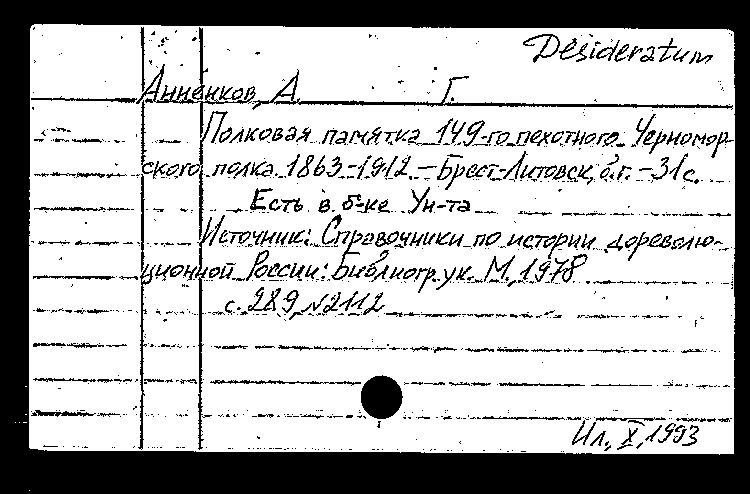 Desideratum
Анненков, А. Г.
Полковая памятка 149-го пехотного Черномор-
ского полка 1863-1912 – Брест-Литовск, б.г. – 31 с.
Есть в б-ке Ун-та
Источник: Справочники по истории дореволю-
ционной России: Библиогр. ук. М., 1978
с. 289, №2112
Ил., X, 1993